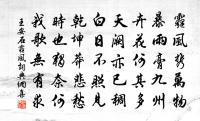 霾風摧萬物
暴雨膏九州
卉花何其多
天闕亦已稠
白日不照見
乾坤莽悲愁
時也獨奈何
我歌無有求
王安石霾風詞典網書